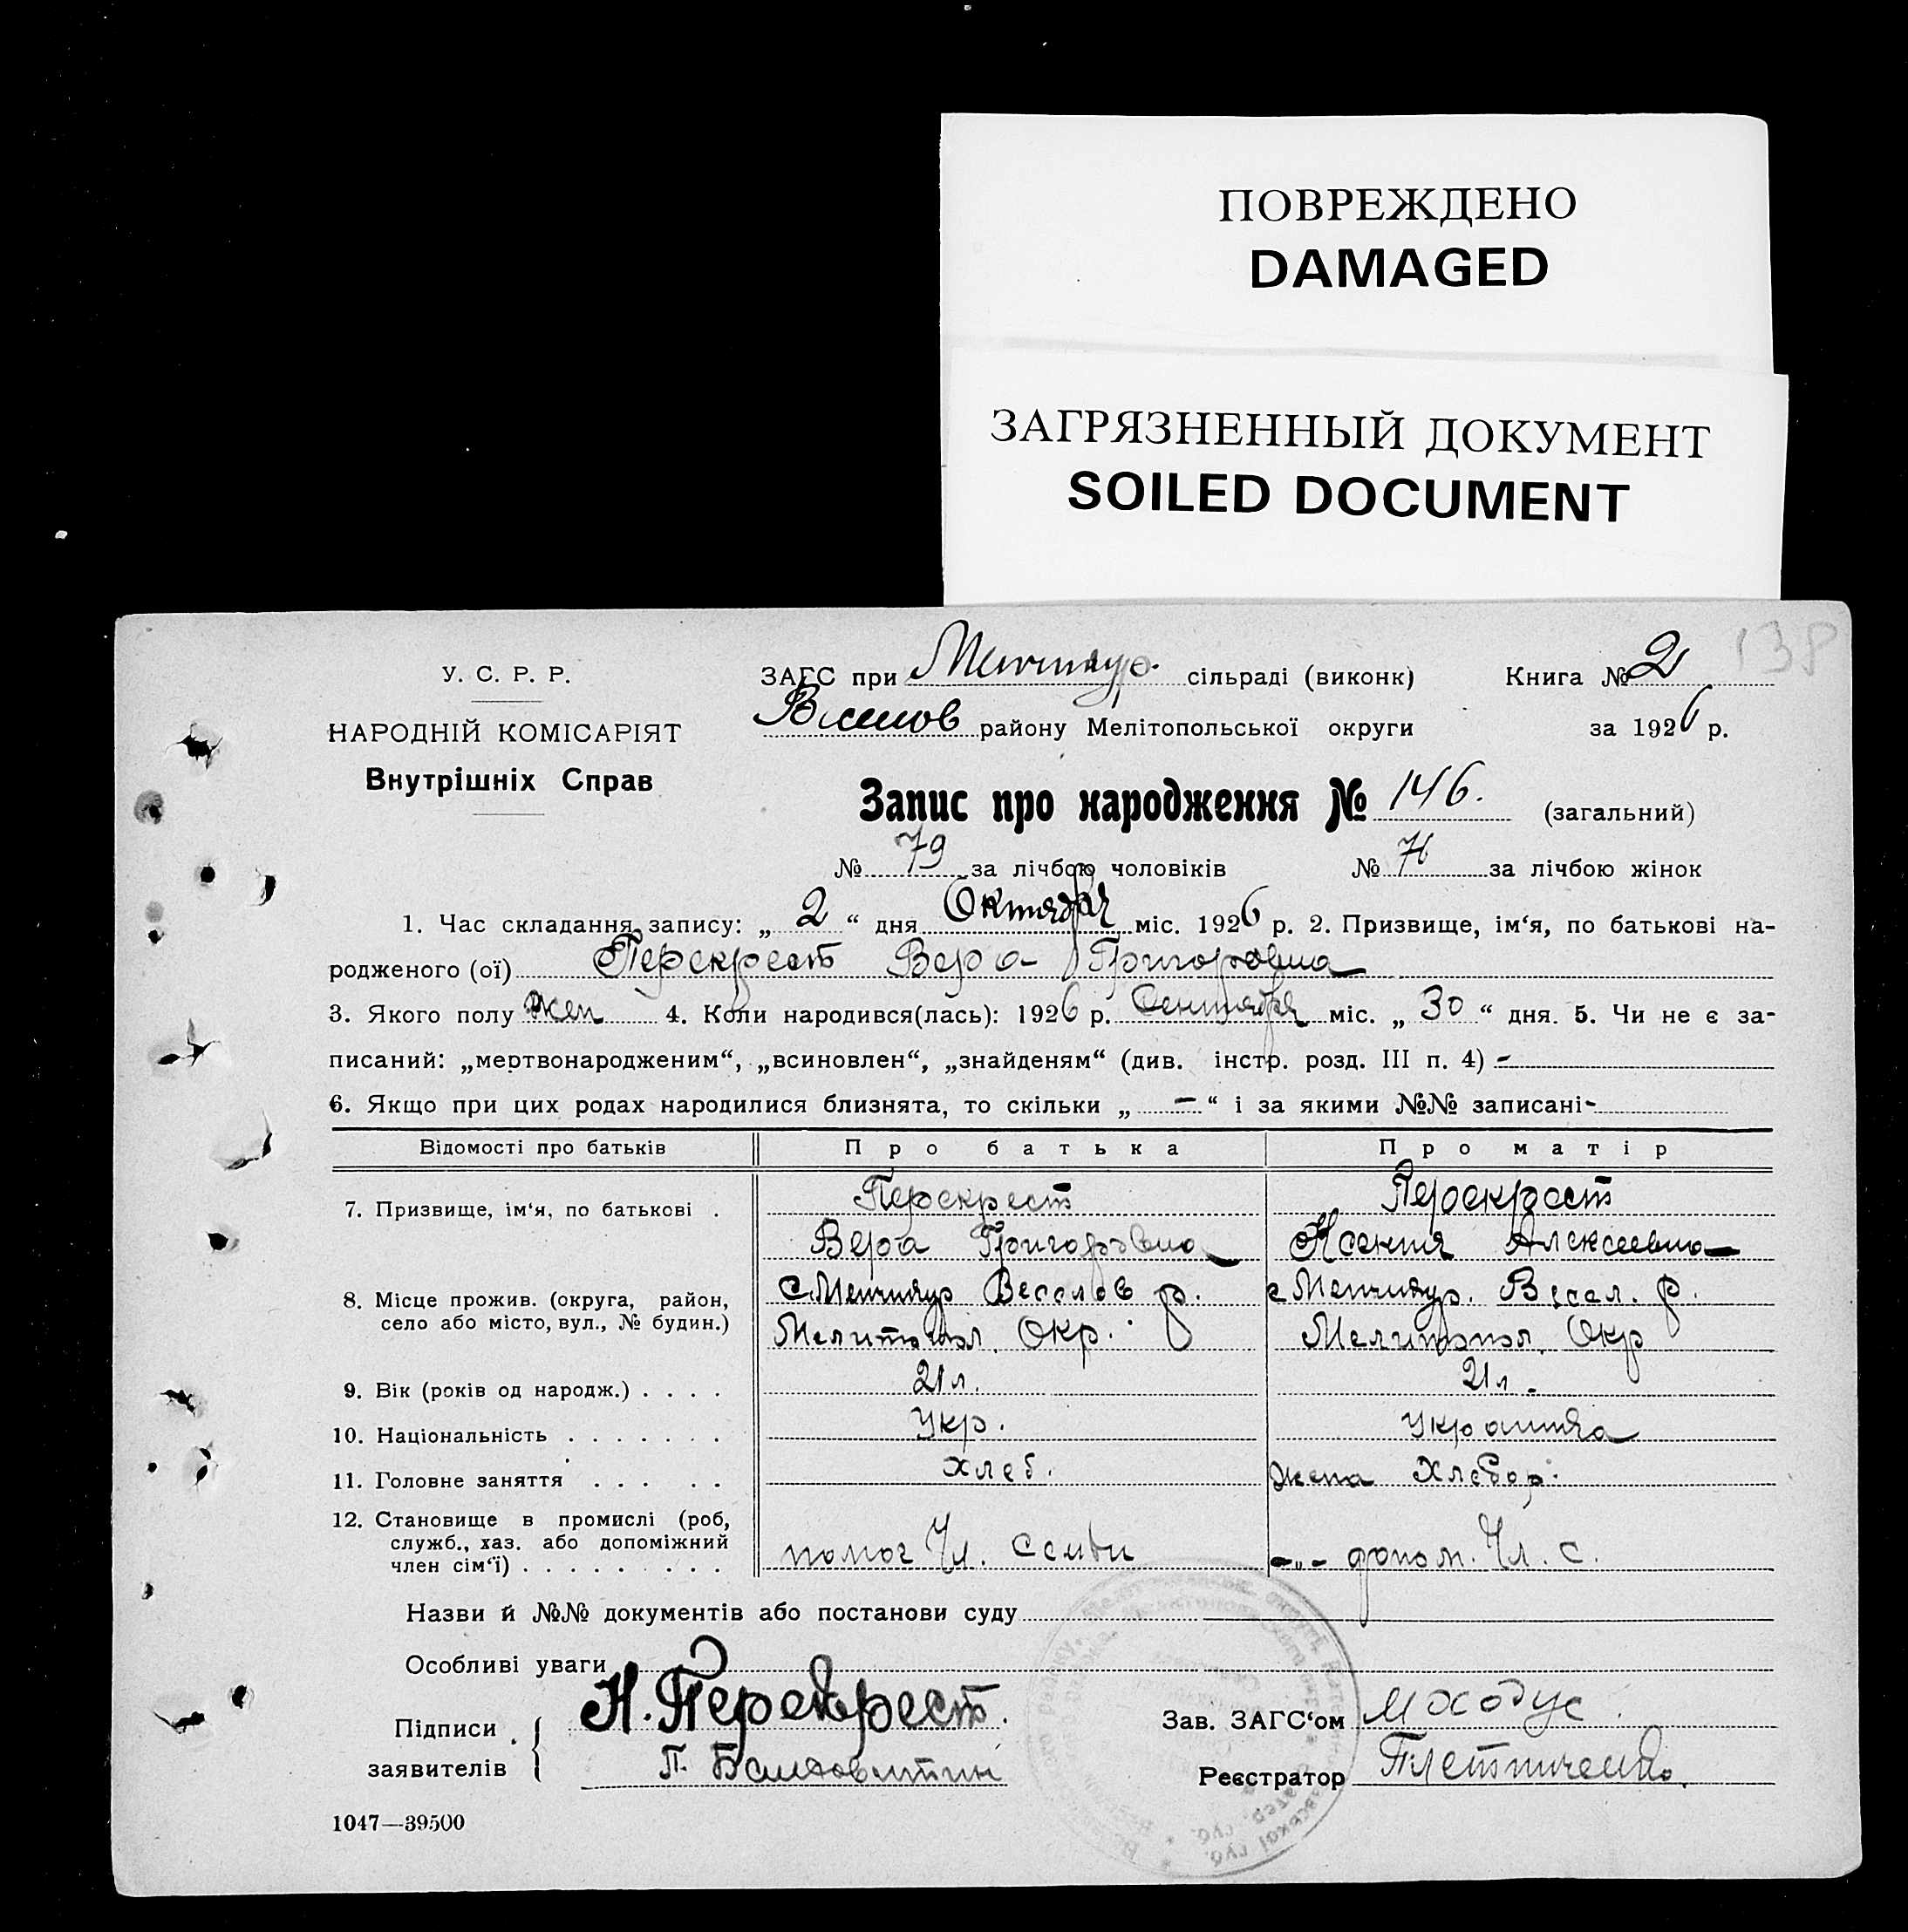 ПОВРЕЖДЕНО
DAMAGED
ЗАГРЯЗНЕННЫЙ ДОКУМЕНТ
SOILED DOCUMENT
138
У. С. Р. Р.
ЗАГС при сільраді (виконк) Книга № 2
НАРОДНІЙ КОМІСАРІЯТ
району Мелітопольської округи за 1926 р.
Внутрішніх Справ
Запис про народження № 146. (загальний)
№ 79 за лічбою чоловіків № за лічбою жінок
1. Час складання запису: „ 2 “ дня Октября міс. 1926 р. 2. Призвище, ім‘я, по батькові на-
родженого (ої) Перекрест Вера Григоровна
3. Якого полу жен 4. Коли народився(лась): 1926 р. Сентября міс. „ 30 “ дня. 5. Чи не є за-
писаний: „мертвонародженим“, „всиновлен“, „знайденям“ (див. інстр. розд. III п. 4) -
6. Якщо при цих родах народилися близнята, то скільки „ - “ і за якими №№ записані -
Відомості про батьків Про батька Про матір
7. Призвище, ім‘я, по батькові . Перекрест Перекрест
Вера Григоровна Ксения Алексеевна
8. Місце прожив. (округа, район, с. Менчикур Веселов р. с Менчикур. Весел. р.
село або місто, вул., № будин.) Мелитопол. Окр. Мелитопол. Окр
9. Вік (років од народж.) . . . . 21 л. 21 л.
10. Національність . . . . . . . Укр. Украинка
11. Головне заняття . . . . . хлеб. жена Хлебор.
12. Становище в промислі (роб,
служб., хаз. або допоміжний
член сім‘ї) . . . . . . . . . помог Чл. Семьи -„- допом. Чл. С.
Назви й №№ документів або постанови суду
Особливі уваги
Підписи
заявителів
Н. Перекрест.
П.
Зав. ЗАГС‘ом
Реєстратор
1047—39500